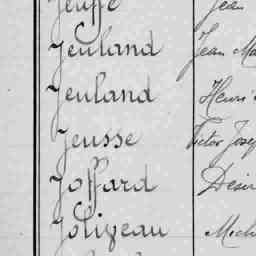 Jeuffe Jean
Jeuland Jean Ma
Jeuland Henri
Jeusse Victor Josep
Joffard Desir
Jolizeau Mich